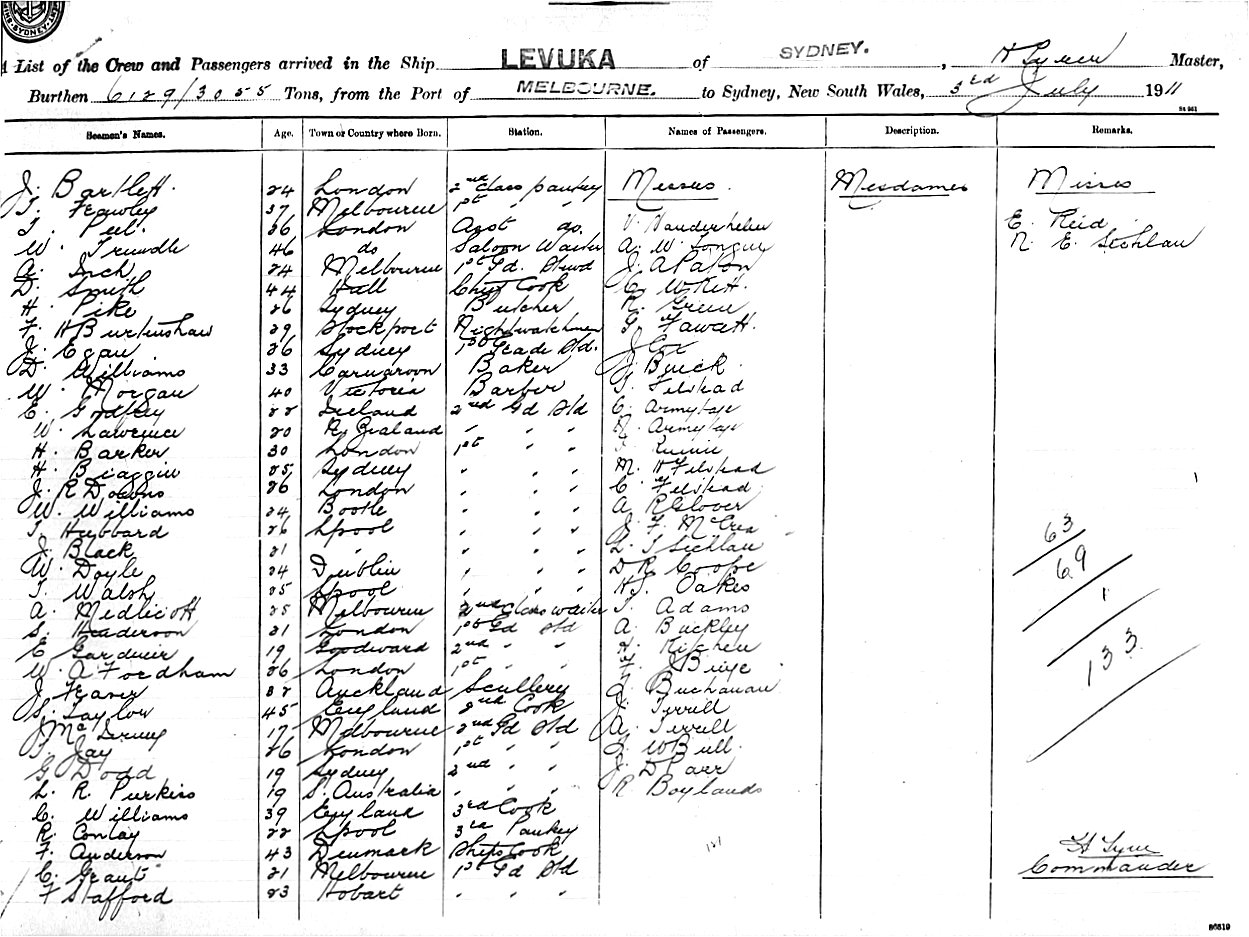 SYDNEY
A List of the Crew and Passengers arrived in the Ship LEVUKA of SYDNEY. , Master,
Burthen 6129/3055 Tons, from the Port of MELBOURNE. to Sydney, New South Wales, 3rd July 1911
Seamen's Names. Age. Town or Country where Born. Station. Names of Passengers. Description. Remarks.
J. Bartlett. 24 London 2nd Class pantry Messrs. Mesdames Misses
37 Melbourne 1st " "
26 London Asst do. E. Reid
W. Trundle 46 do Saloon Waiter A. W. N. E.
A. Inch 24 Melbourne 1st Gd. Stwd J. A Paton
D. Smith 44 Hull Chief Cook C. W Kitt.
H. Pike 26 Sydney Butcher R. Green
F. H Burtenshaw 29 Stockport Nightwatchman Fawcett.
J. Egan 26 Sydney 1st Grade Std. J Cox
D. Williams 33 Carnarvon Baker J. Buick
W. Morgan 40 Victoria Barber Felstead
E. Godfrey 22 Ireland 2nd Gd Std C. Armytage
W. Lawrence 20 N. Zealand " " " Armytage
H. Barker 30 London 1st " "
H. Biaggini 25 Sydney " " " M. H Felstead
J. R Dobbns 26 London " " " C. Felstead
W. Williams 24 Bootle " " " A R Glover
T. Hubbard 26 Lpool " " " J. F. McCrea 63
J. Black 21 " " " "
W. Doyle 24 Dublin " " " D R Coope 69
T. Walsh 25 Lpool " " " H. J. Oakes
A. Medlicott 25 Melbourne 2nd Class waiter Adams 1
S. Henderson 21 London 1st Gd Std A. Buckley
E Gardner 19 Goodward 2nd " " Kitchen
W. A Fordham 26 London 1st " " 133
J. 32 Auckland Scullery Buchanan
S. Taylor 45 England 2nd Cook J. Terrell
J Mc 17 Melbourne 2nd Gd Std A. Terrell
Jay 26 London 1st " " W Bull.
G. Dodd 19 Sydney 2nd " " J. D Parr
L. R. Purkiss 19 S. Australia " " " R Boylands
C. Williams 39 England 3rd Cook
R. Conlay 22 Lpool 3rd Pantry
F. Anderson 43 Denmark Ships Cook
C. Grant 21 Melbourne 1st Gd Std Commander
F Stafford 23 Hobart " " "